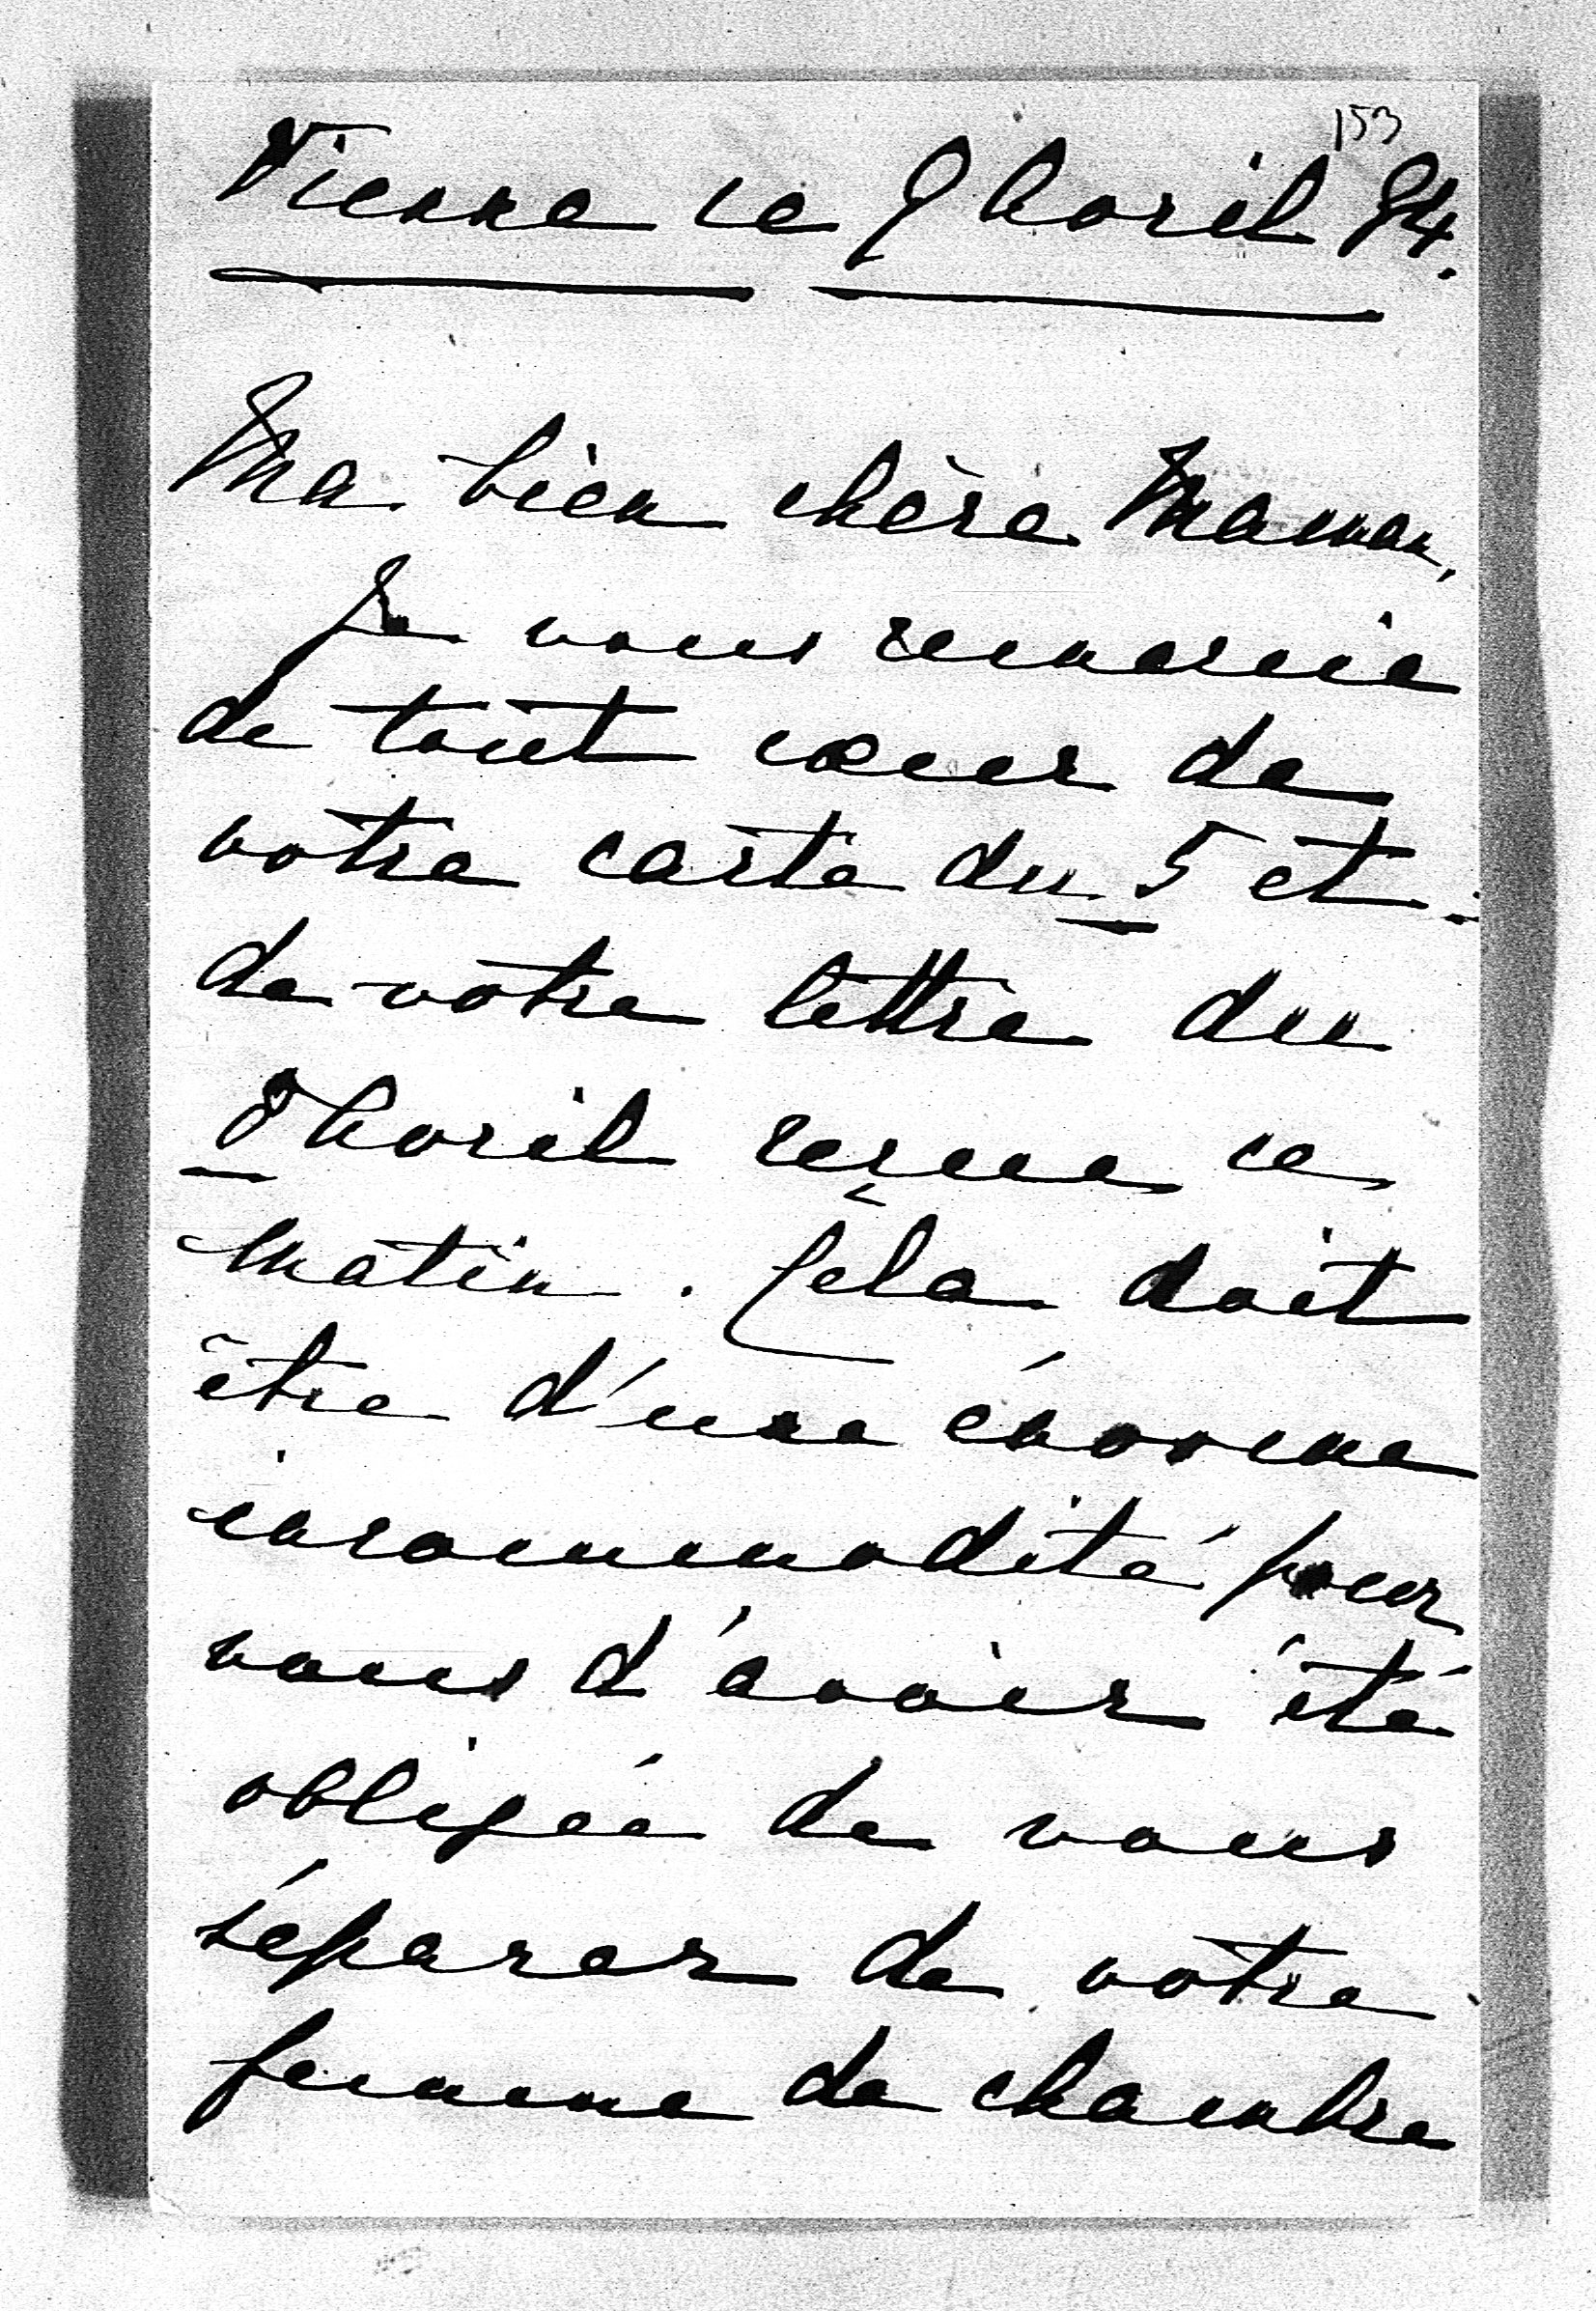 153
Vienne ce 9 Avril 84.
Ma bien chère Maman,
Je vous remercie
de tout cœur de
votre carte du 5 et
de votre lettre du
8 Avril reçue ce
matin. Cela doit
être d'une énorme
incommodité pour
vous d'avoir été
obligée de vous
séparer de votre
femme de chambre